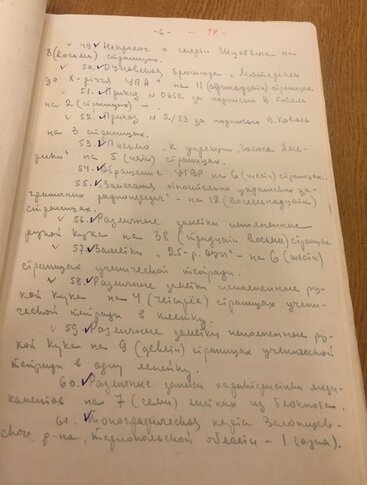 -6- 14
49. Некролог о смерти Шухевича на
8 (восьми) страницах.
50. Духовская брошюра "Матеріали
до X-річчя УПА" на 11 (одинадцати) страницах
51. Приказ N 0652 за подписью В. Коваль
на 2 (страницах) -.
52. Приказ N 2/53 за подписью В. Коваль
на 3 страницах.
53. Письмо "К дирекции Голоса Аме-
рики" на 5 (пяти) страницах.
54. Обращение УГВР на 6 (шести) страницах.
55. Замечания относительно украинских за-
граничных радиопередач - на 18 (восемнадцати)
страницах.
56. Различные заметки исполненные
рукой Кука на 38 (тридцати восьми) страницах
57. Заметки "25-р. ОУН" - на 6 (шести)
страницах ученической тетради.
58. Различные заметки исполненные ру-
кой Кука на 4 (четырёх) страницах учени-
ческой тетради в клетку.
59. Различные заметки исполненные ру-
кой Кука на 9 (девяти) страницах ученической
тетради в одну линейку.
60. Различные записи характеристики меди-
каментов на 7 (семи) листках из блокнота.
61. Топографическая карта Заложцев-
ского р-на, Тернопольской области - 1 (одна).